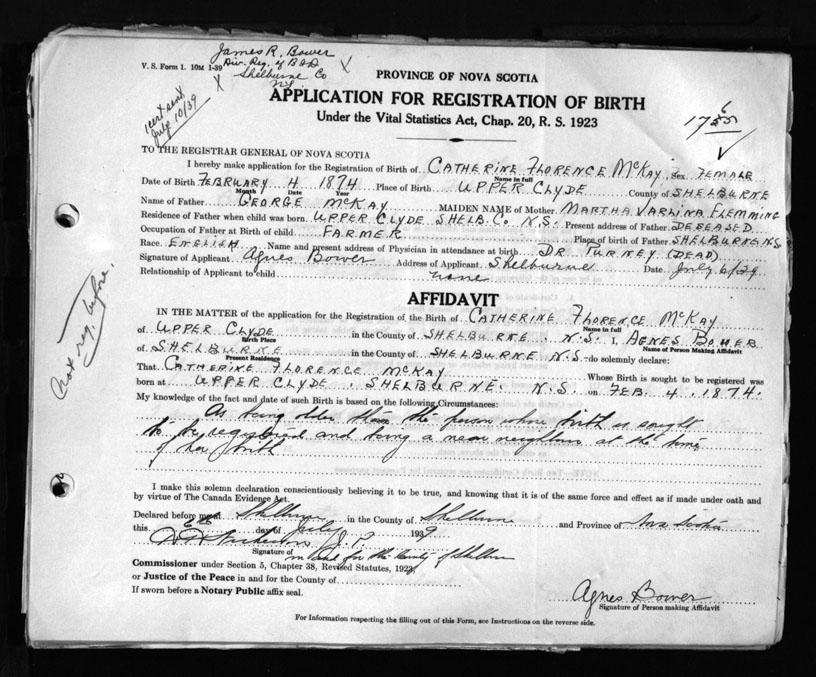 James R. Bower
V. S. Form 1. 10M 1-39 Div. Reg. of B & D
Shelburne Co
N.S.
cert sent
July 10/39
PROVINCE OF NOVA SCOTIA
APPLICATION FOR REGISTRATION OF BIRTH
Under the Vital Statistics Act, Chap. 20, R. S. 1923
TO THE REGISTRAR GENERAL OF NOVA SCOTIA
I hereby make application for the Registration of Birth of CATHERINE FLORENCE McKAY Sex FEMALE
Name in full
Date of Birth FEBRUARY 4 1874 Place of Birth UPPER CLYDE County of SHELBURNE
Month Date Year
Name of Father GEORGE McKAY MAIDEN NAME of Mother MARTHA VARDINA FLEMMING
Residence of Father when child was born UPPER CLYDE SHELB. CO. N.S. Present address of Father DEREASED
Occupation of Father at Birth of child FARMER Place of birth of Father SHELBURNE N.S.
Race ENGLISH Name and present address of Physician in attendance at birth DR PURNEY (DEAD)
Signature of Applicant Agnes Bower Address of Applicant Shelburne Date July 6/39
Relationship of Applicant to child none
AFFIDAVIT
IN THE MATTER of the application for the Registration of the Birth of CATHERINE FLORENCE McKAY
Name in full
of UPPER CLYDE in the County of SHELBURNE. N.S. I, AGNES BOWER
Birth Place Name of Person Making Affidavit
of SHELBURNE in the County of SHELBURNE N.S. do solemnly declare:
Present Residence
That CATHERINE FLORENCE McKAY Whose Birth is sought to be registered was
born at UPPER CLYDE, SHELBURNE. N.S. on FEB. 4. 1874.
My knowledge of the fact and date of such Birth is based on the following Circumstances:
As being older than the person whose birth is sought
to be registered and being a near neighbour at the time
of her birth
Not reg. before.
I make this solemn declaration conscientiously believing it to be true, and knowing that it is of the same force and effect as if made under oath and
by virtue of The Canada Evidence Act.
Declared before me at Shelburne in the County of Shelburne and Province of Nova Scotia
this 6th day of July 1939.
J. P.
Signature of in and for the County of Shelburne
Commissioner under Section 5, Chapter 38, Revised Statutes, 1923,
or Justice of the Peace in and for the County of
If sworn before a Notary Public affix seal.
Agnes Bower
Signature of Person making Affidavit
For Information respecting the filling out of this Form, see Instructions on the reverse side.